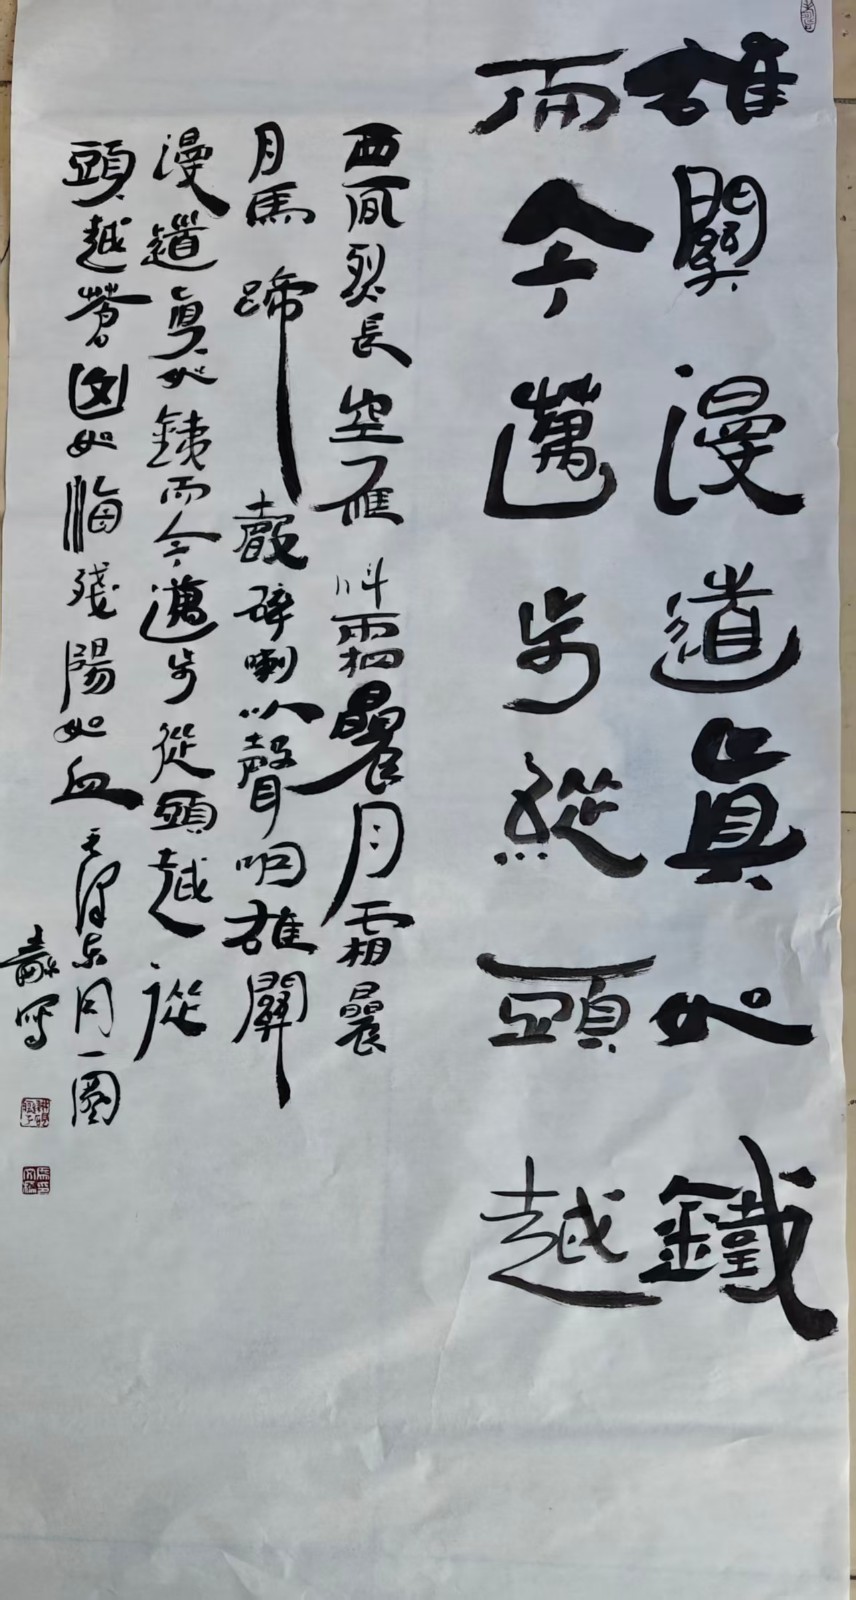 雄關漫道眞如鐵
而今邁步縱頭越
西風烈長空雁叫霜晨月霜晨
月馬蹄聲碎喇叭聲咽雄關
漫道眞如銕而今邁步從頭越從
頭越蒼山如海殘陽如血毛澤東
寫